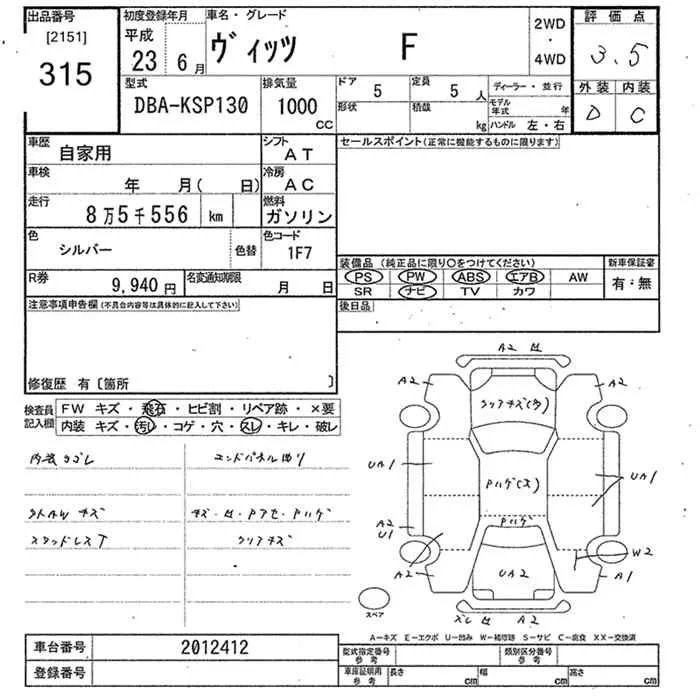 出品番号 初度登録年月 車名・グレード 2WD 評価点
[2151] 平成 ヴィッツ F ・ 3.5
315 23年 6月 4WD
型式 排気量 ドア 定員 ディーラー・並行 外装 内装
DBA-KSP130 1000 CC 5 5人 モデル年式 年 D C
形状 積載 kg ハンドル 左・右
車歴 自家用 シフト AT セールスポイント(正常に機能するものに限ります)
車検 年 月( 日) 冷房 AC
走行 8万5千556 km 燃料 ガソリン
色 シルバー 色替 色コード 1F7
装備品(純正品に限り○をつけてください) 新車保証書
R券 9,940円 名変通知期限 月 日 PS PW ABS エアB AW 有・無
SR ナビ TV カワ
注意事項申告欄(不具合内容等は具体的に記入して下さい) 後日品
修復歴 有〔箇所 〕
検査員記入欄 FW キズ・飛石・ヒビ割・リペア跡・×要
内装 キズ・汚レ・コゲ・穴・スレ・キレ・破レ
内装ヨゴレ エンドパネル凹
外AW キズ キズ・凹・Pアセ・Pハゲ
スタッドレスT クリアキズ
A2 凹
A2 A2
クリアキズ(多)
UA1 Pハゲ(大) UA1
A2 Pハゲ
U1 W2
A2 UA2 A1
スペア ズレ 凹 A2
A―キズ E―エクボ U―凹み W―補修跡 S―サビ C―腐食 XX―交換済
車台番号 2012412 型式指定番号 参考 類別区分番号 参考
登録番号 車庫証明用 参考 長さ cm 幅 cm 高さ cm